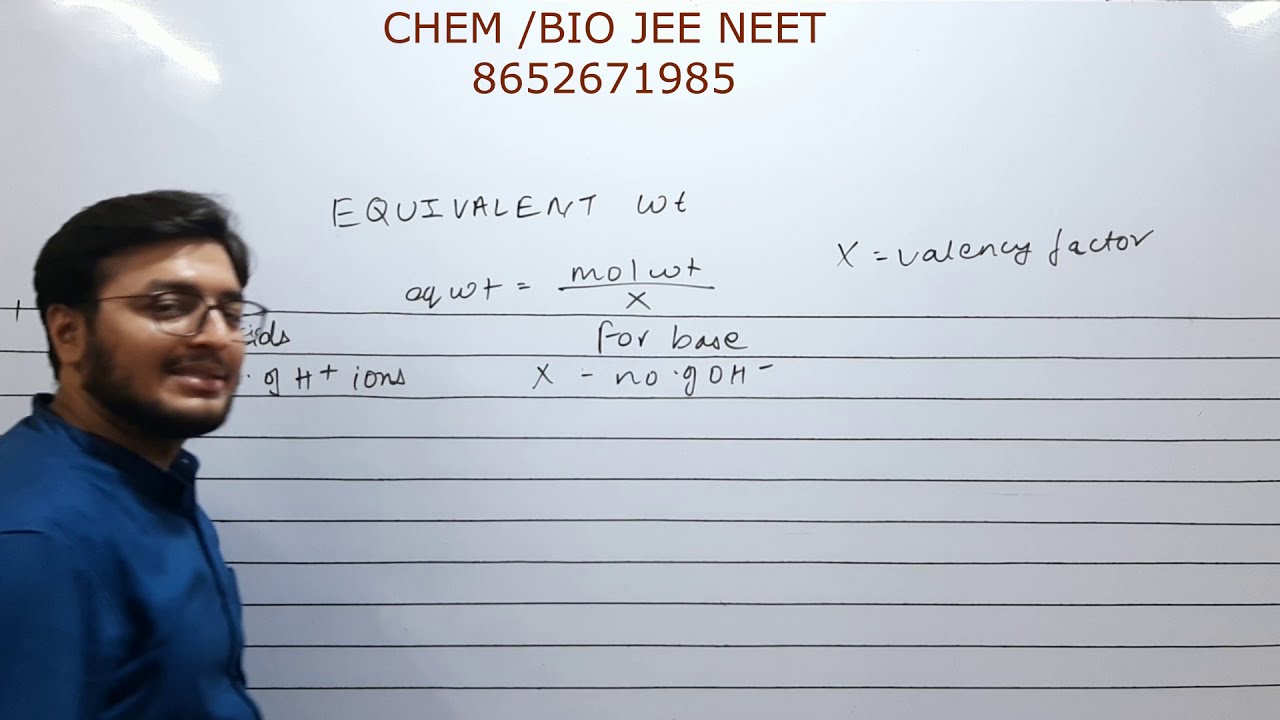 CHEM /BIO JEE NEET
8652671985
EQUIVALENT wt
X = valency factor
eq wt = mol wt / X
for base
g H+ ions
X - no. g OH-